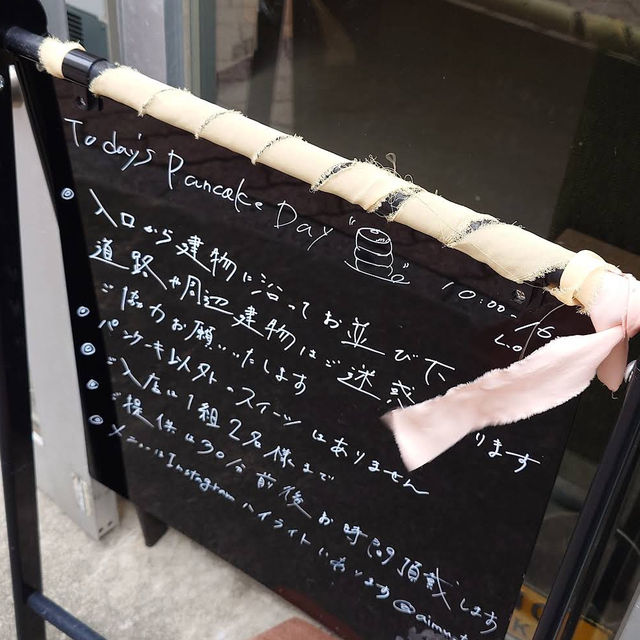 Today's Pancake Day 10:00-16
L.o
• 入口から建物に沿ってお並び下
道路や周辺建物はご迷惑 ります
ご協力お願いたします
• パンケーキ以外のスイーツはありません
• ご入店は1組2名様まで
• ご提供に30分前後お時間頂戴します
• メニューはInstagramハイライトにあります@aimu